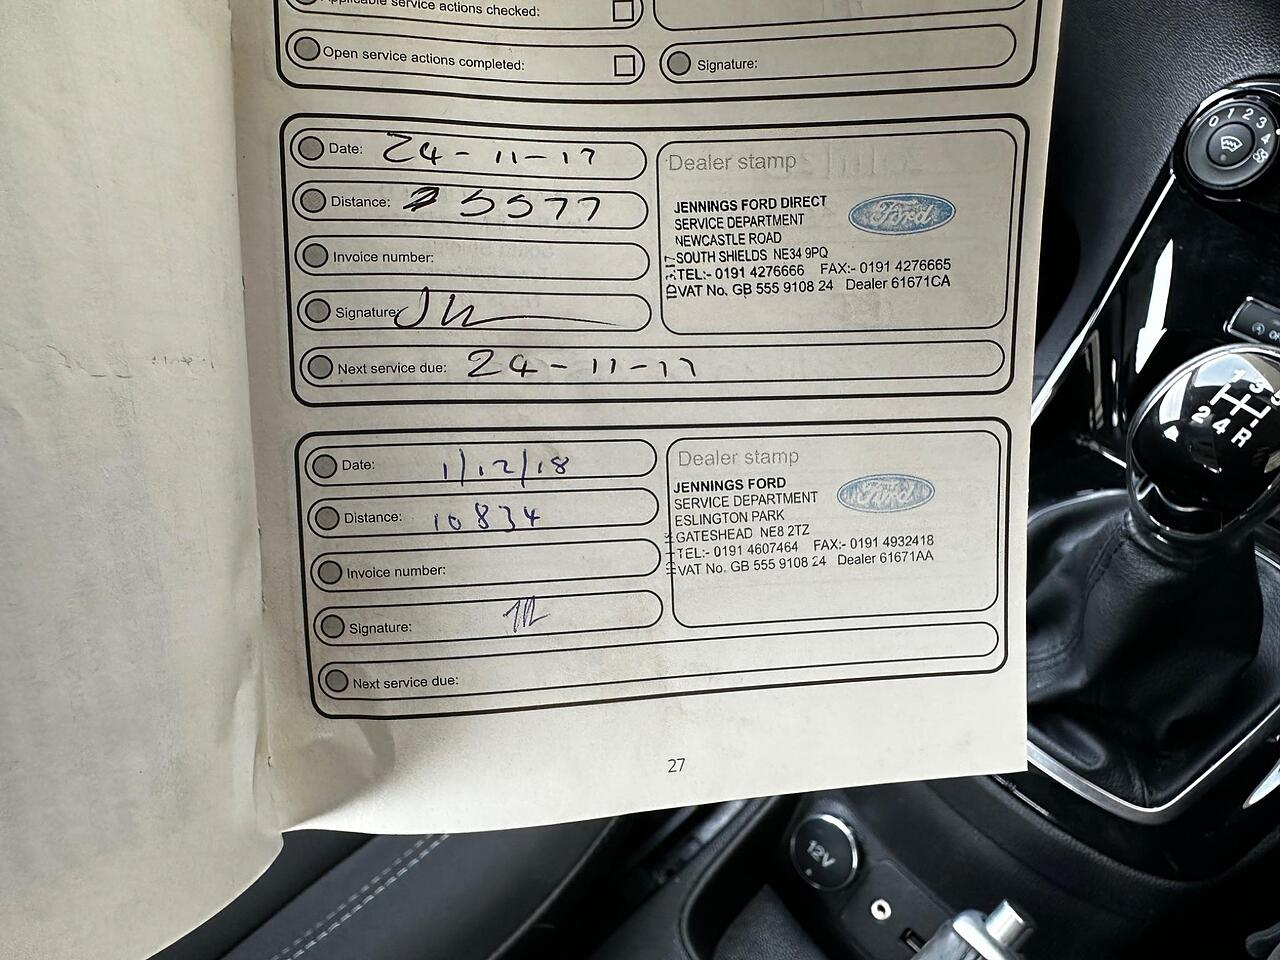 Applicable service actions checked:
Open service actions completed:
Signature:
Date: 24-11-17
Distance: 5577
Invoice number:
Signature:
Next service due: 24-11-17
Dealer stamp
JENNINGS FORD DIRECT
SERVICE DEPARTMENT
NEWCASTLE ROAD
SOUTH SHIELDS NE34 9PQ
TEL:- 0191 4276666 FAX:- 0191 4276665
VAT No. GB 555 9108 24 Dealer 61671CA
Ford
Date: 1/12/18
Distance: 10834
Invoice number:
Signature:
Next service due:
Dealer stamp
JENNINGS FORD
SERVICE DEPARTMENT
ESLINGTON PARK
GATESHEAD NE8 2TZ
TEL:- 0191 4607464 FAX:- 0191 4932418
VAT No. GB 555 9108 24 Dealer 61671AA
Ford
27
0 1 2 3 4
1 3 5
2 4 R
12V